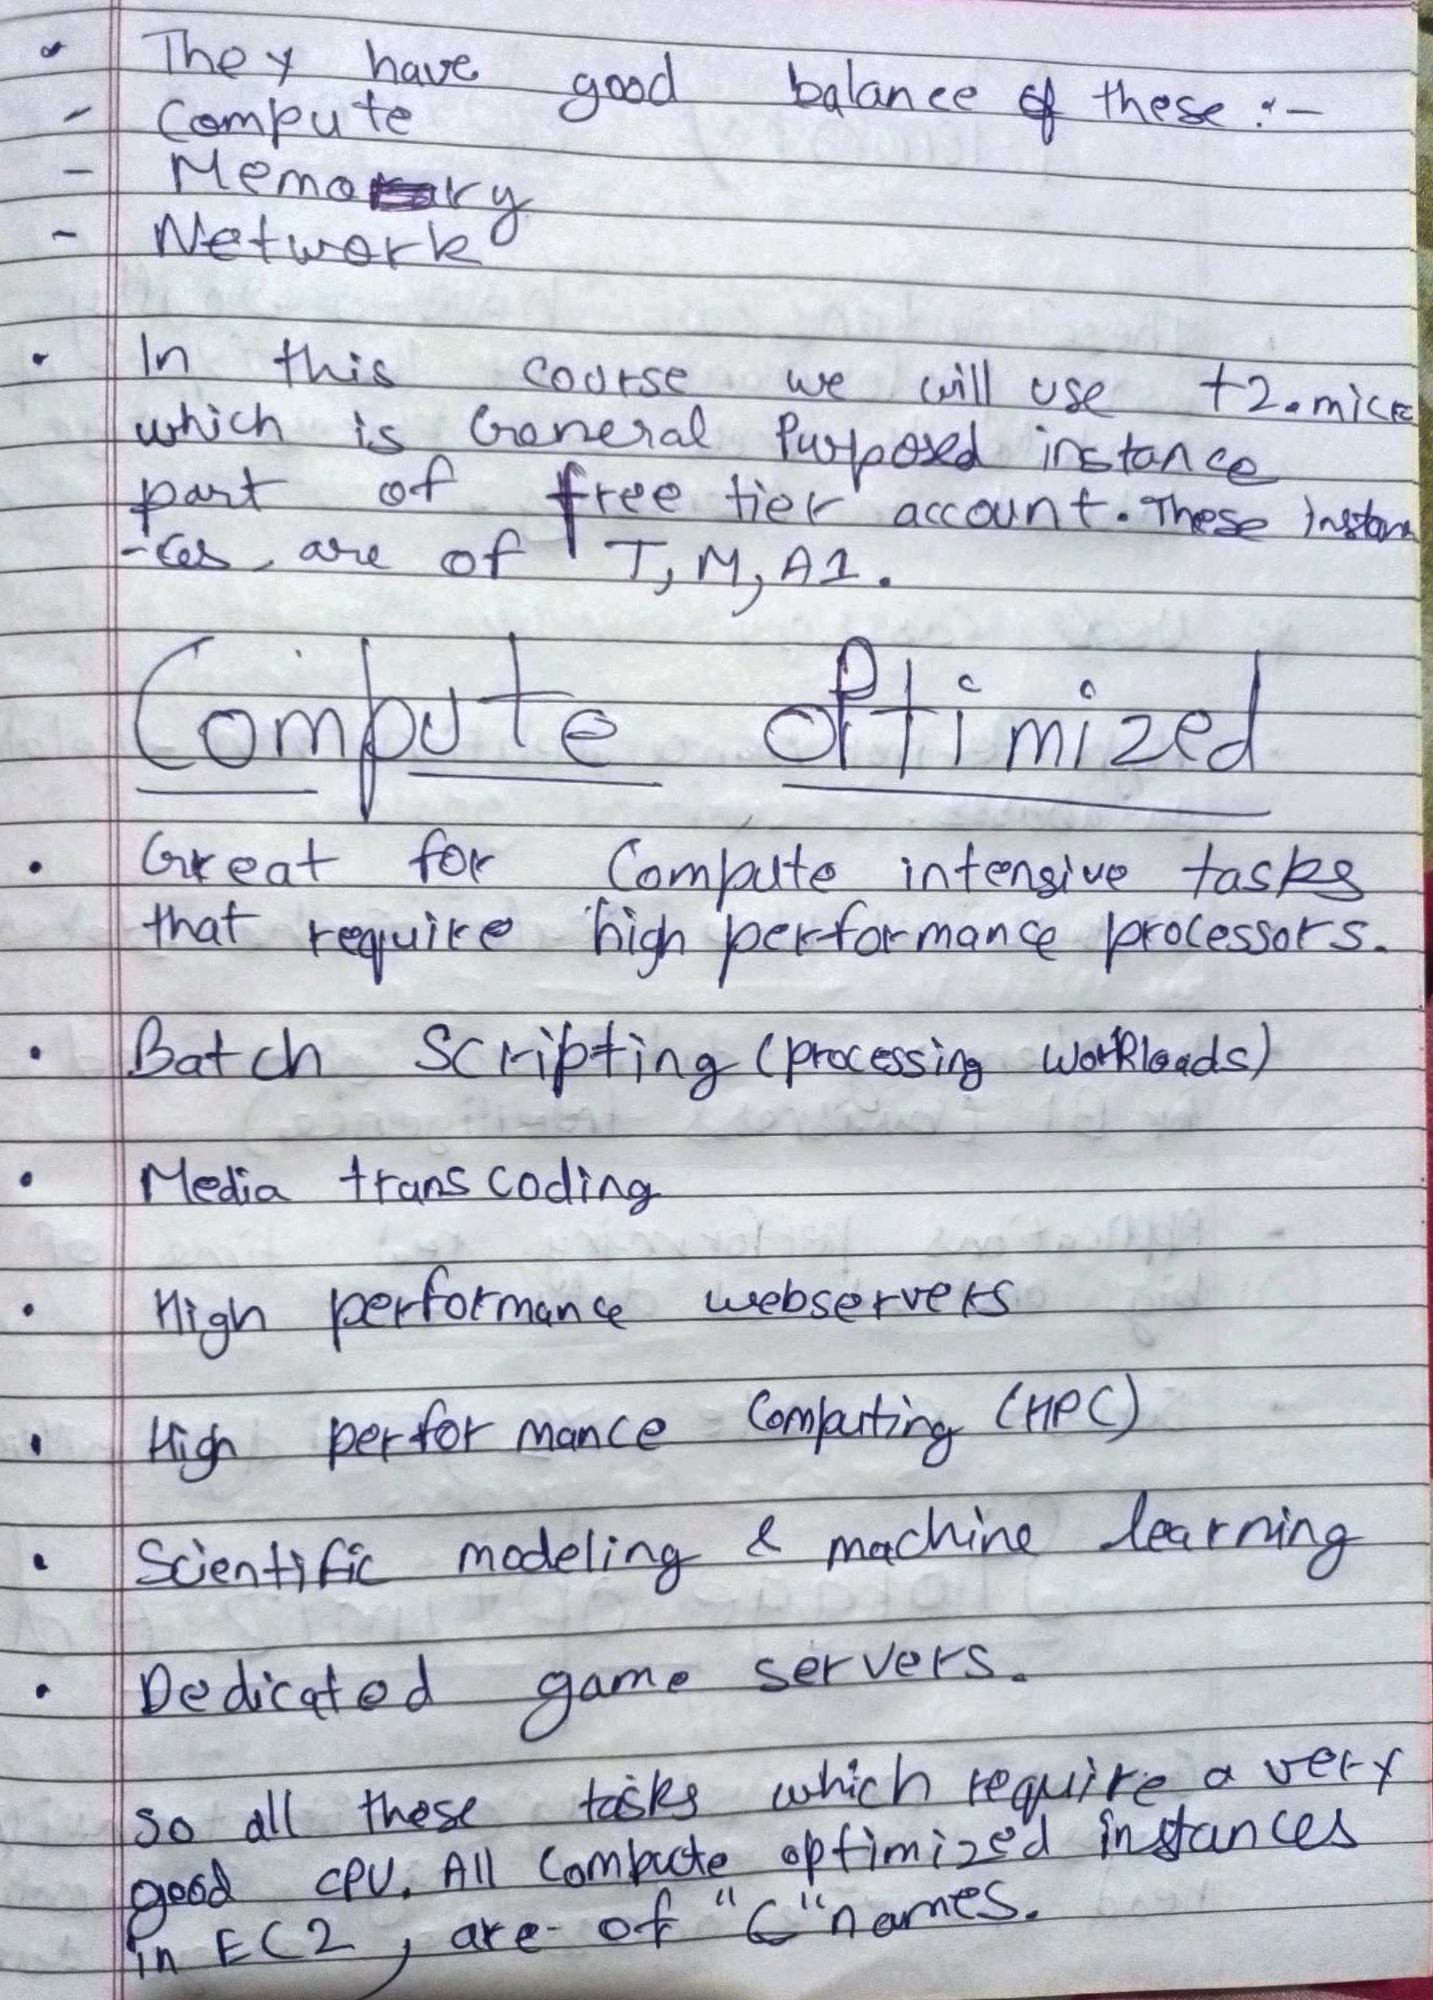 • They have good balance of these :-
- Compute
- Memory
- Network
• In this course we will use t2.micro
which is General Purposed instance
part of free tier account. These instan
-ces, are of T, M, A1.
Compute Optimized
• Great for Compute intensive tasks
that require high performance processors.
• Batch Scripting (processing workloads)
• Media transcoding
• High performance webservers
• High performance Computing (HPC)
• Scientific modeling & machine learning
• Dedicated game servers.
So all these tasks which require a very
good CPU. All Compute optimized instances
in EC2, are of "C" names.